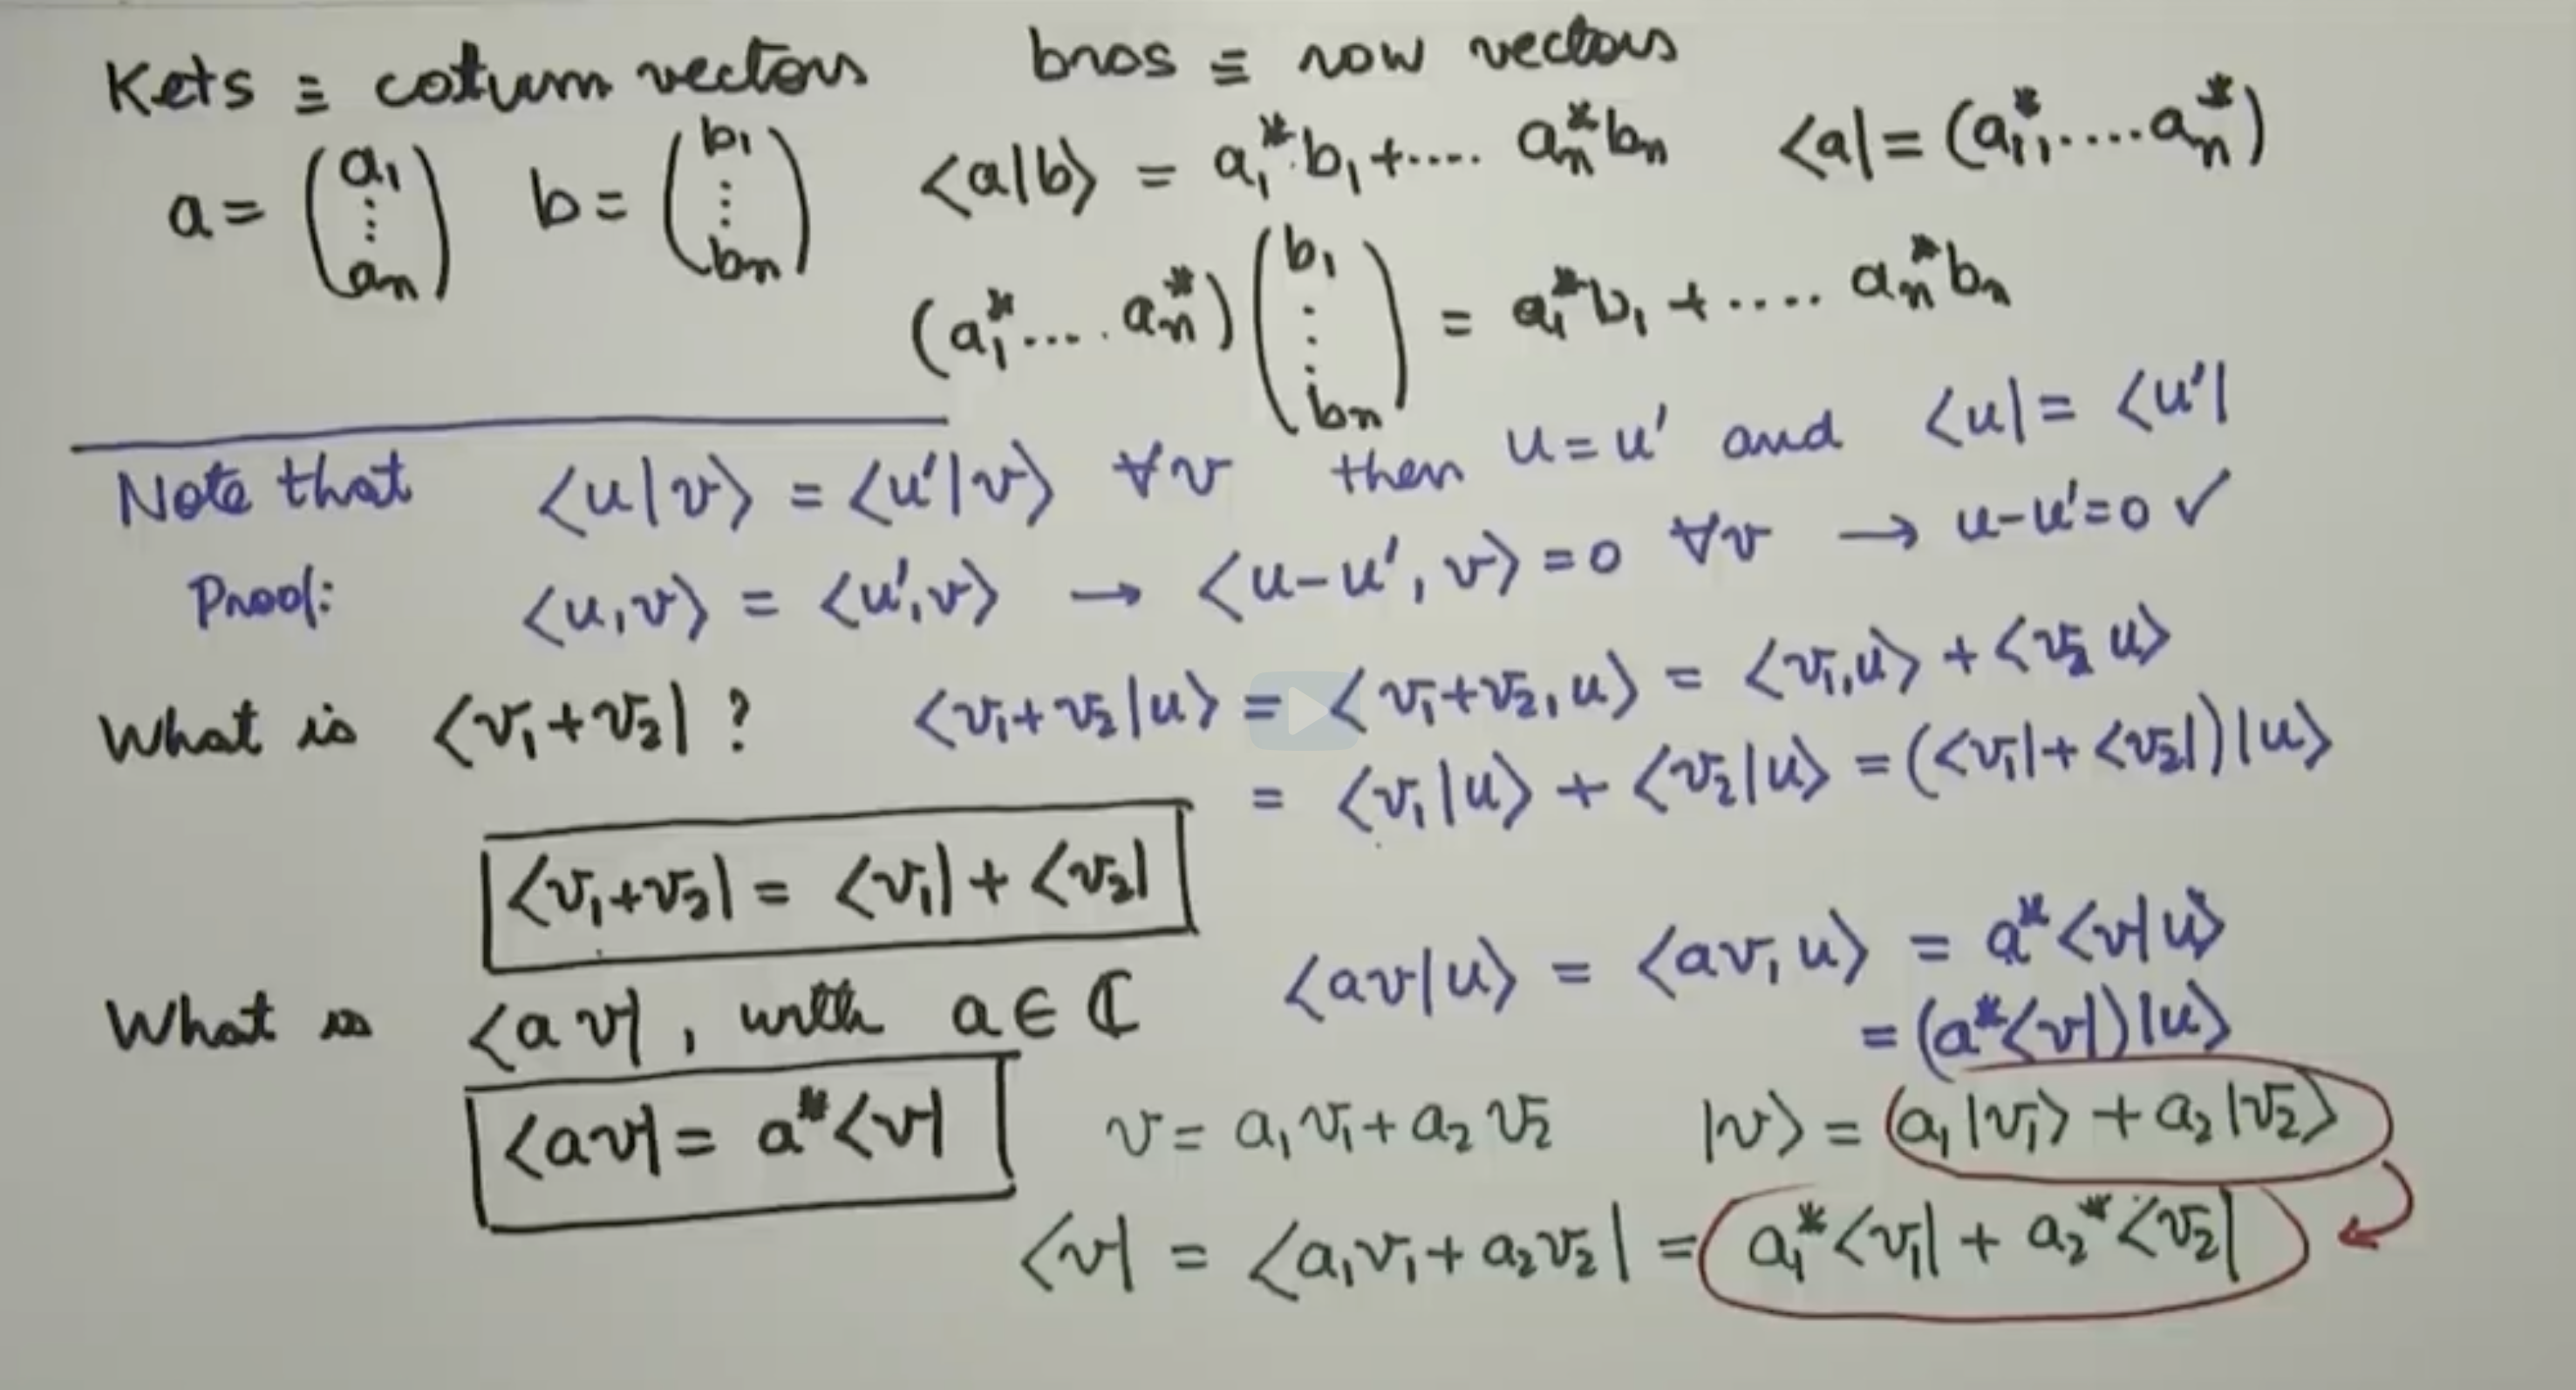 Kets ≡ column vectors bras ≡ row vectors
a = (a₁ ⋮ aₙ) b = (b₁ ⋮ bₙ) <a|b> = a₁*b₁ + .... aₙ*bₙ <a| = (a₁*, .... aₙ*)
(a₁* .... aₙ*) (b₁ ⋮ bₙ) = a₁*b₁ + .... aₙ*bₙ
Note that <u|v> = <u'|v> ∀v then u = u' and <u| = <u'|
Proof: <u,v> = <u',v> → <u-u', v> = 0 ∀v → u-u'=0 ✓
What is <v₁+v₂| ? <v₁+v₂|u> = <v₁+v₂,u> = <v₁,u> + <v₂ u>
= <v₁|u> + <v₂|u> = (<v₁| + <v₂|)|u>
<v₁+v₂| = <v₁| + <v₂|
What is <av|, with a ∈ ℂ <av|u> = <av,u> = a*<v|u>
= (a*<v|)|u>
<av| = a*<v| v = a₁v₁ + a₂v₂ |v> = a₁|v₁> + a₂|v₂>
<v| = <a₁v₁ + a₂v₂| = a₁*<v₁| + a₂*<v₂|